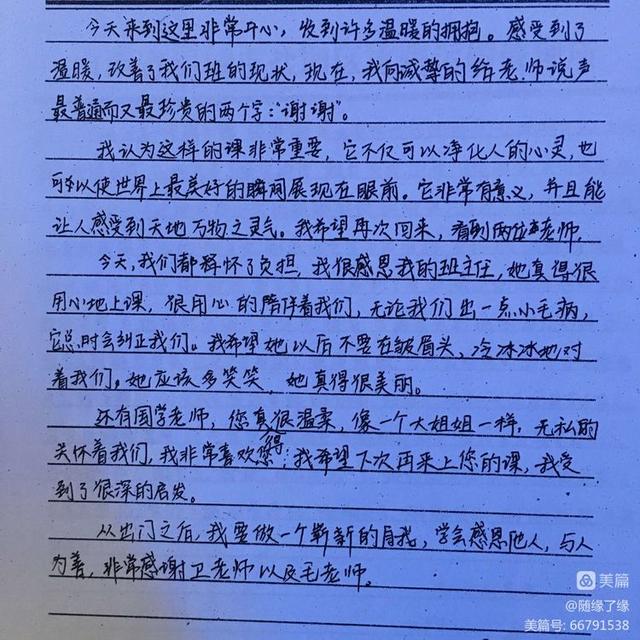 今天来到这里非常开心，收到许多温暖的拥抱。感受到了
温暖，改善了我们班的现状，现在，我向诚挚的给老师说声
最普通而又最珍贵的两个字：“谢谢”。
我认为这样的课非常重要，它不仅可以净化人的心灵，也
可以使世界上最美好的瞬间展现在眼前。它非常有意义，并且能
让人感受到天地万物之灵气。我希望再次回来，看到两位老师，
今天，我们都释怀了负担，我很感恩我的班主任，她真得很
用心地上课，很用心的陪伴着我们，无论我们出一点小毛病，
总时会纠正我们。我希望她以后不要在皱眉头，冷冰冰地对
着我们。她应该多笑笑，她真得很美丽。
还有国学老师，您真得很温柔，像一个大姐姐一样，无私的
关怀着我们，我非常喜欢您；我希望下次再来上您的课，我受
到了很深的启发。
从出门之后，我要做一个崭新的自我，学会感恩他人，与人
为善，非常感谢卫老师以及毛老师。
美篇
@随缘了缘
美篇号: 66791538